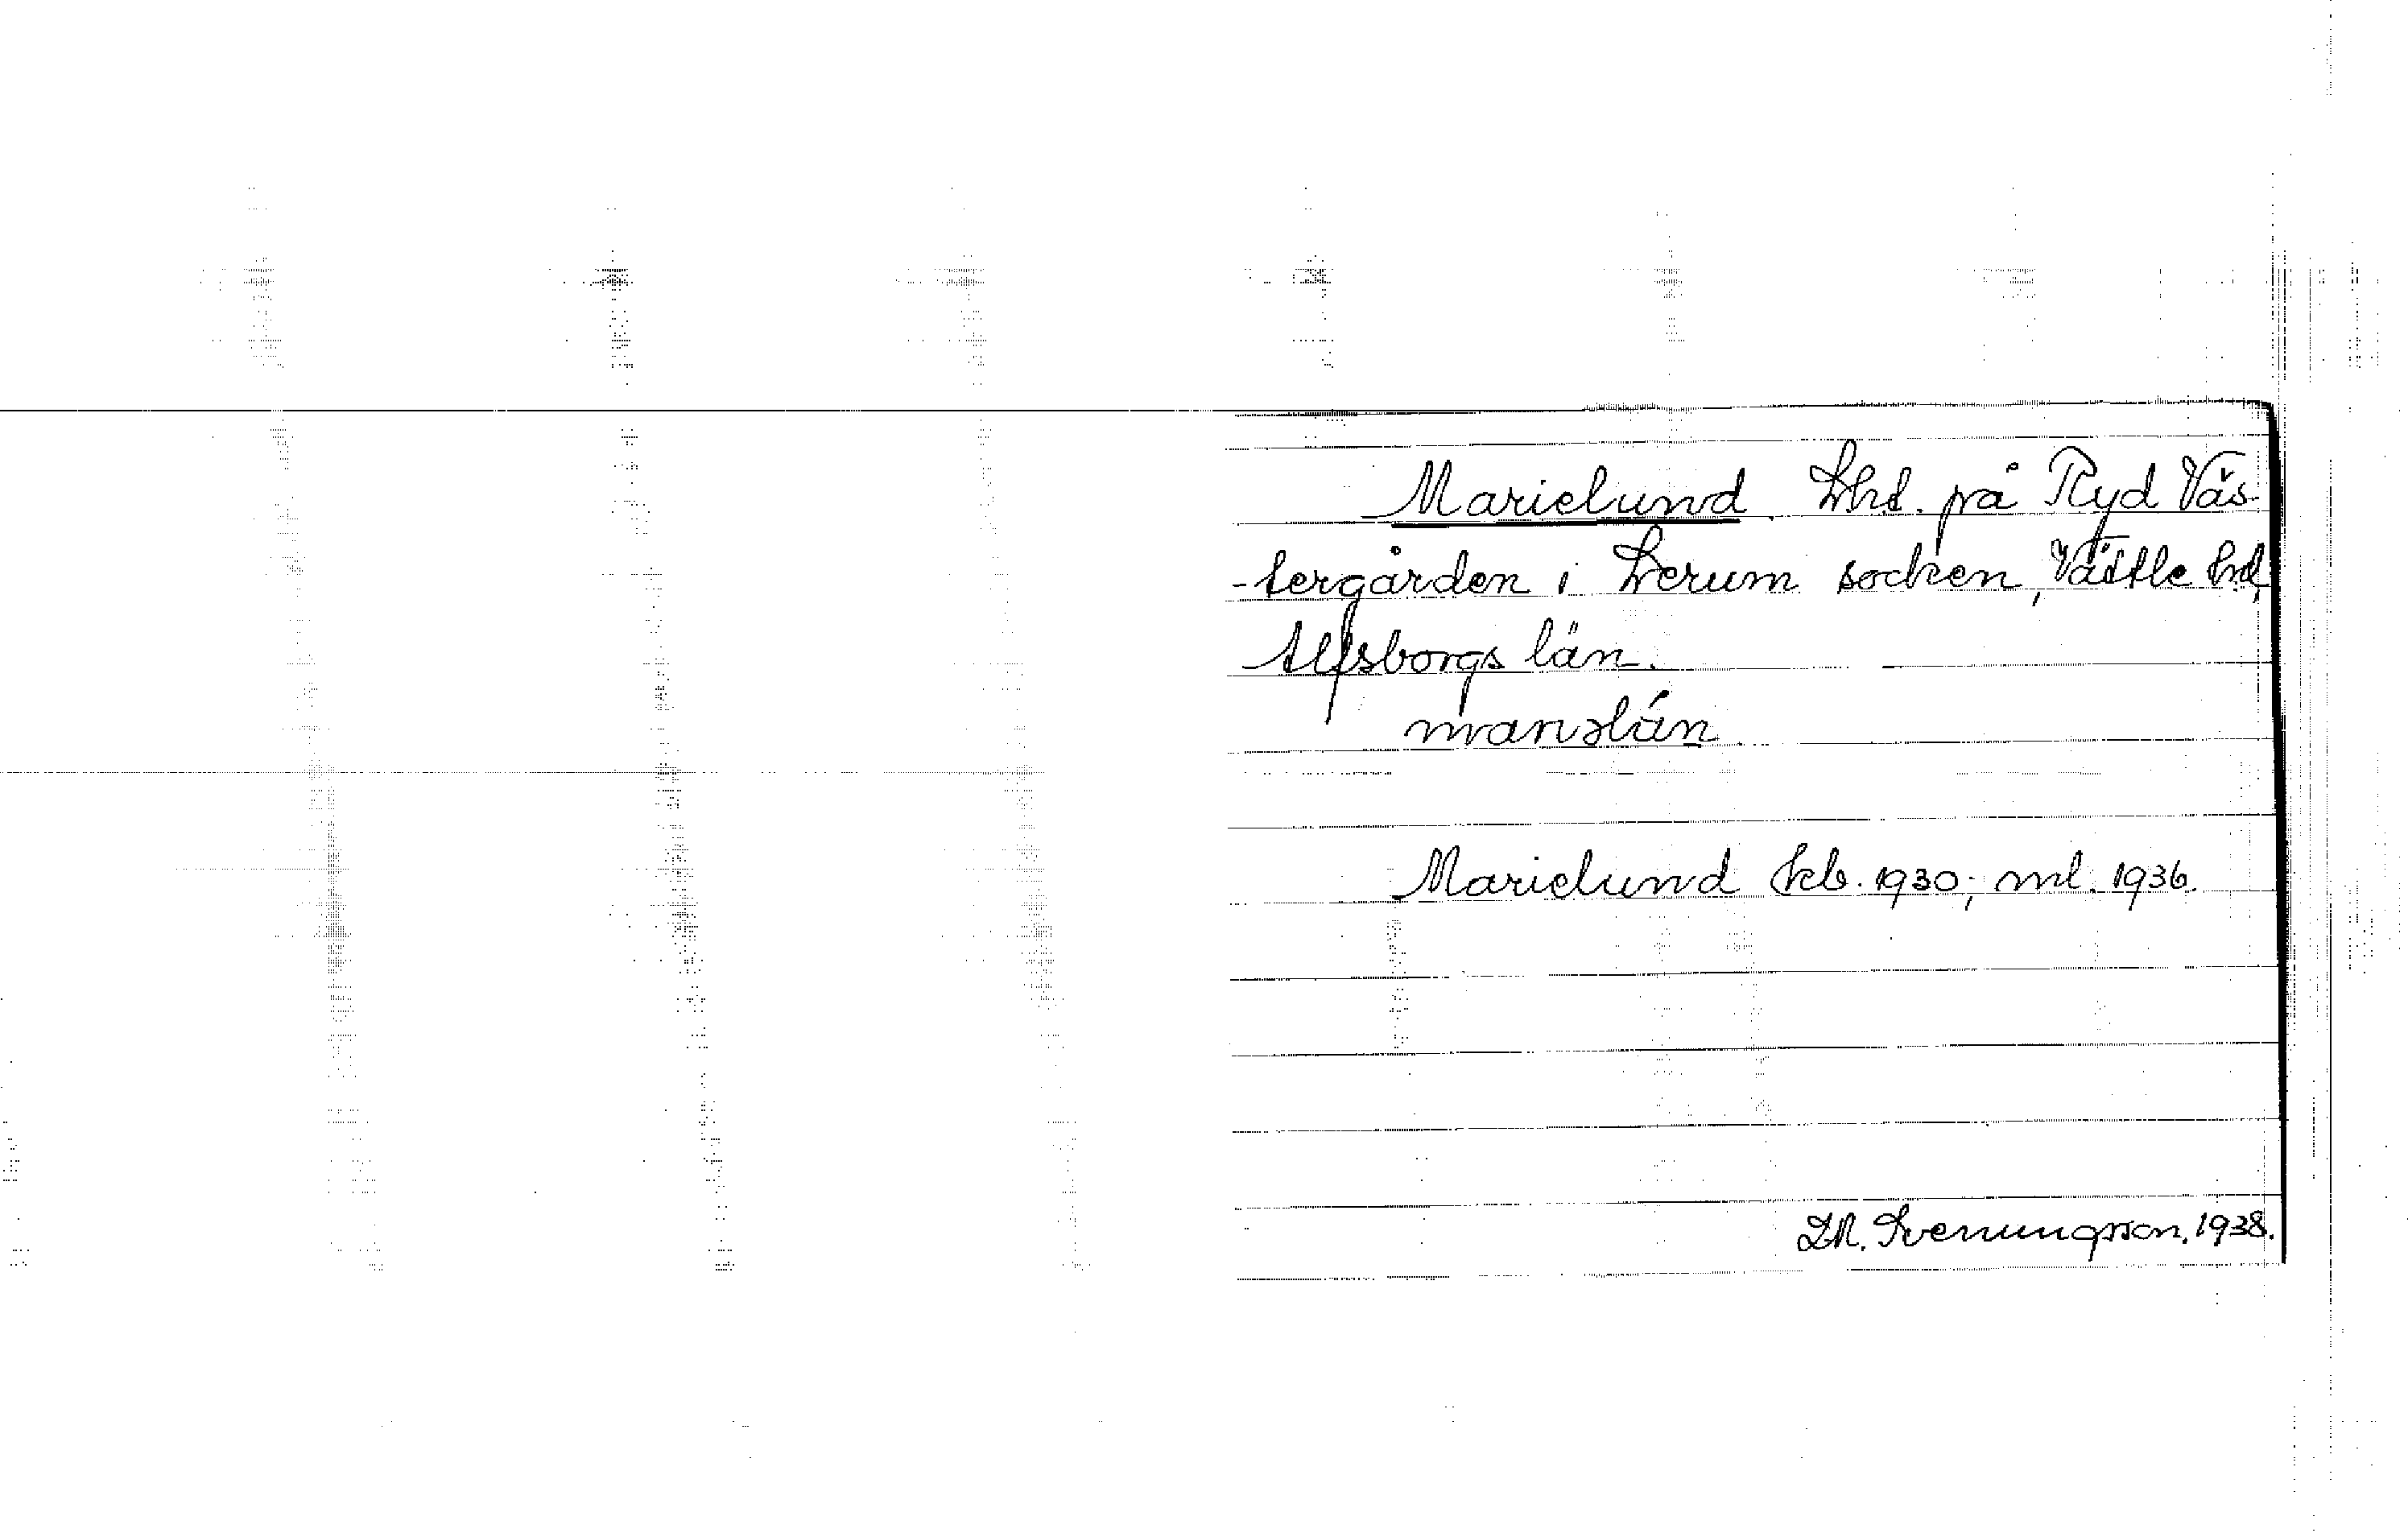 Marielund. Lht. på Ryd Väs-
-tergården i Lerum socken, Vättle hd,
Älfsborgs län.
Marielund kb. 1930; ml. 1936.
LM. Svenungsson. 1938.